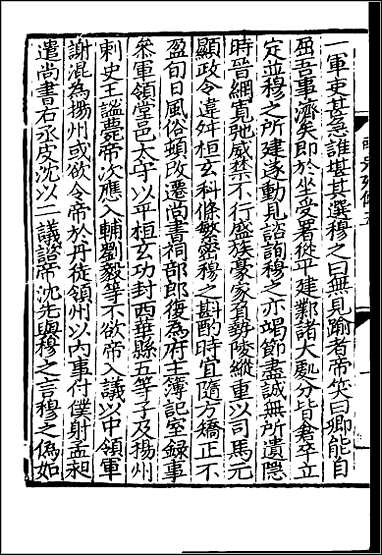 一軍吏甚急誰堪其選穆之曰無見踰者帝笑曰卿能自
屈吾事濟矣即於坐受署從平建鄴諸大處分皆倉卒立
定並穆之所建遂動見諮詢穆之亦竭節盡誠無所遺隱
時晉綱寬弛威禁不行盛族豪家負勢陵縱重以司馬元
顯政令違舛桓玄科條繁密穆之斟酌時宜隨方矯正不
盈旬日風俗頓改遷尚書祠部郎復為府主簿記室録事
參軍領堂邑太守以平桓玄功封西華縣五等子及揚州
刺史王謐薨帝次應入輔劉毅等不欲帝入議以中領軍
謝混為揚州或欲令帝於丹徒領州以内事付僕射孟昶
遣尚書右丞皮沈以二議諮帝沈先與穆之言穆之偽如